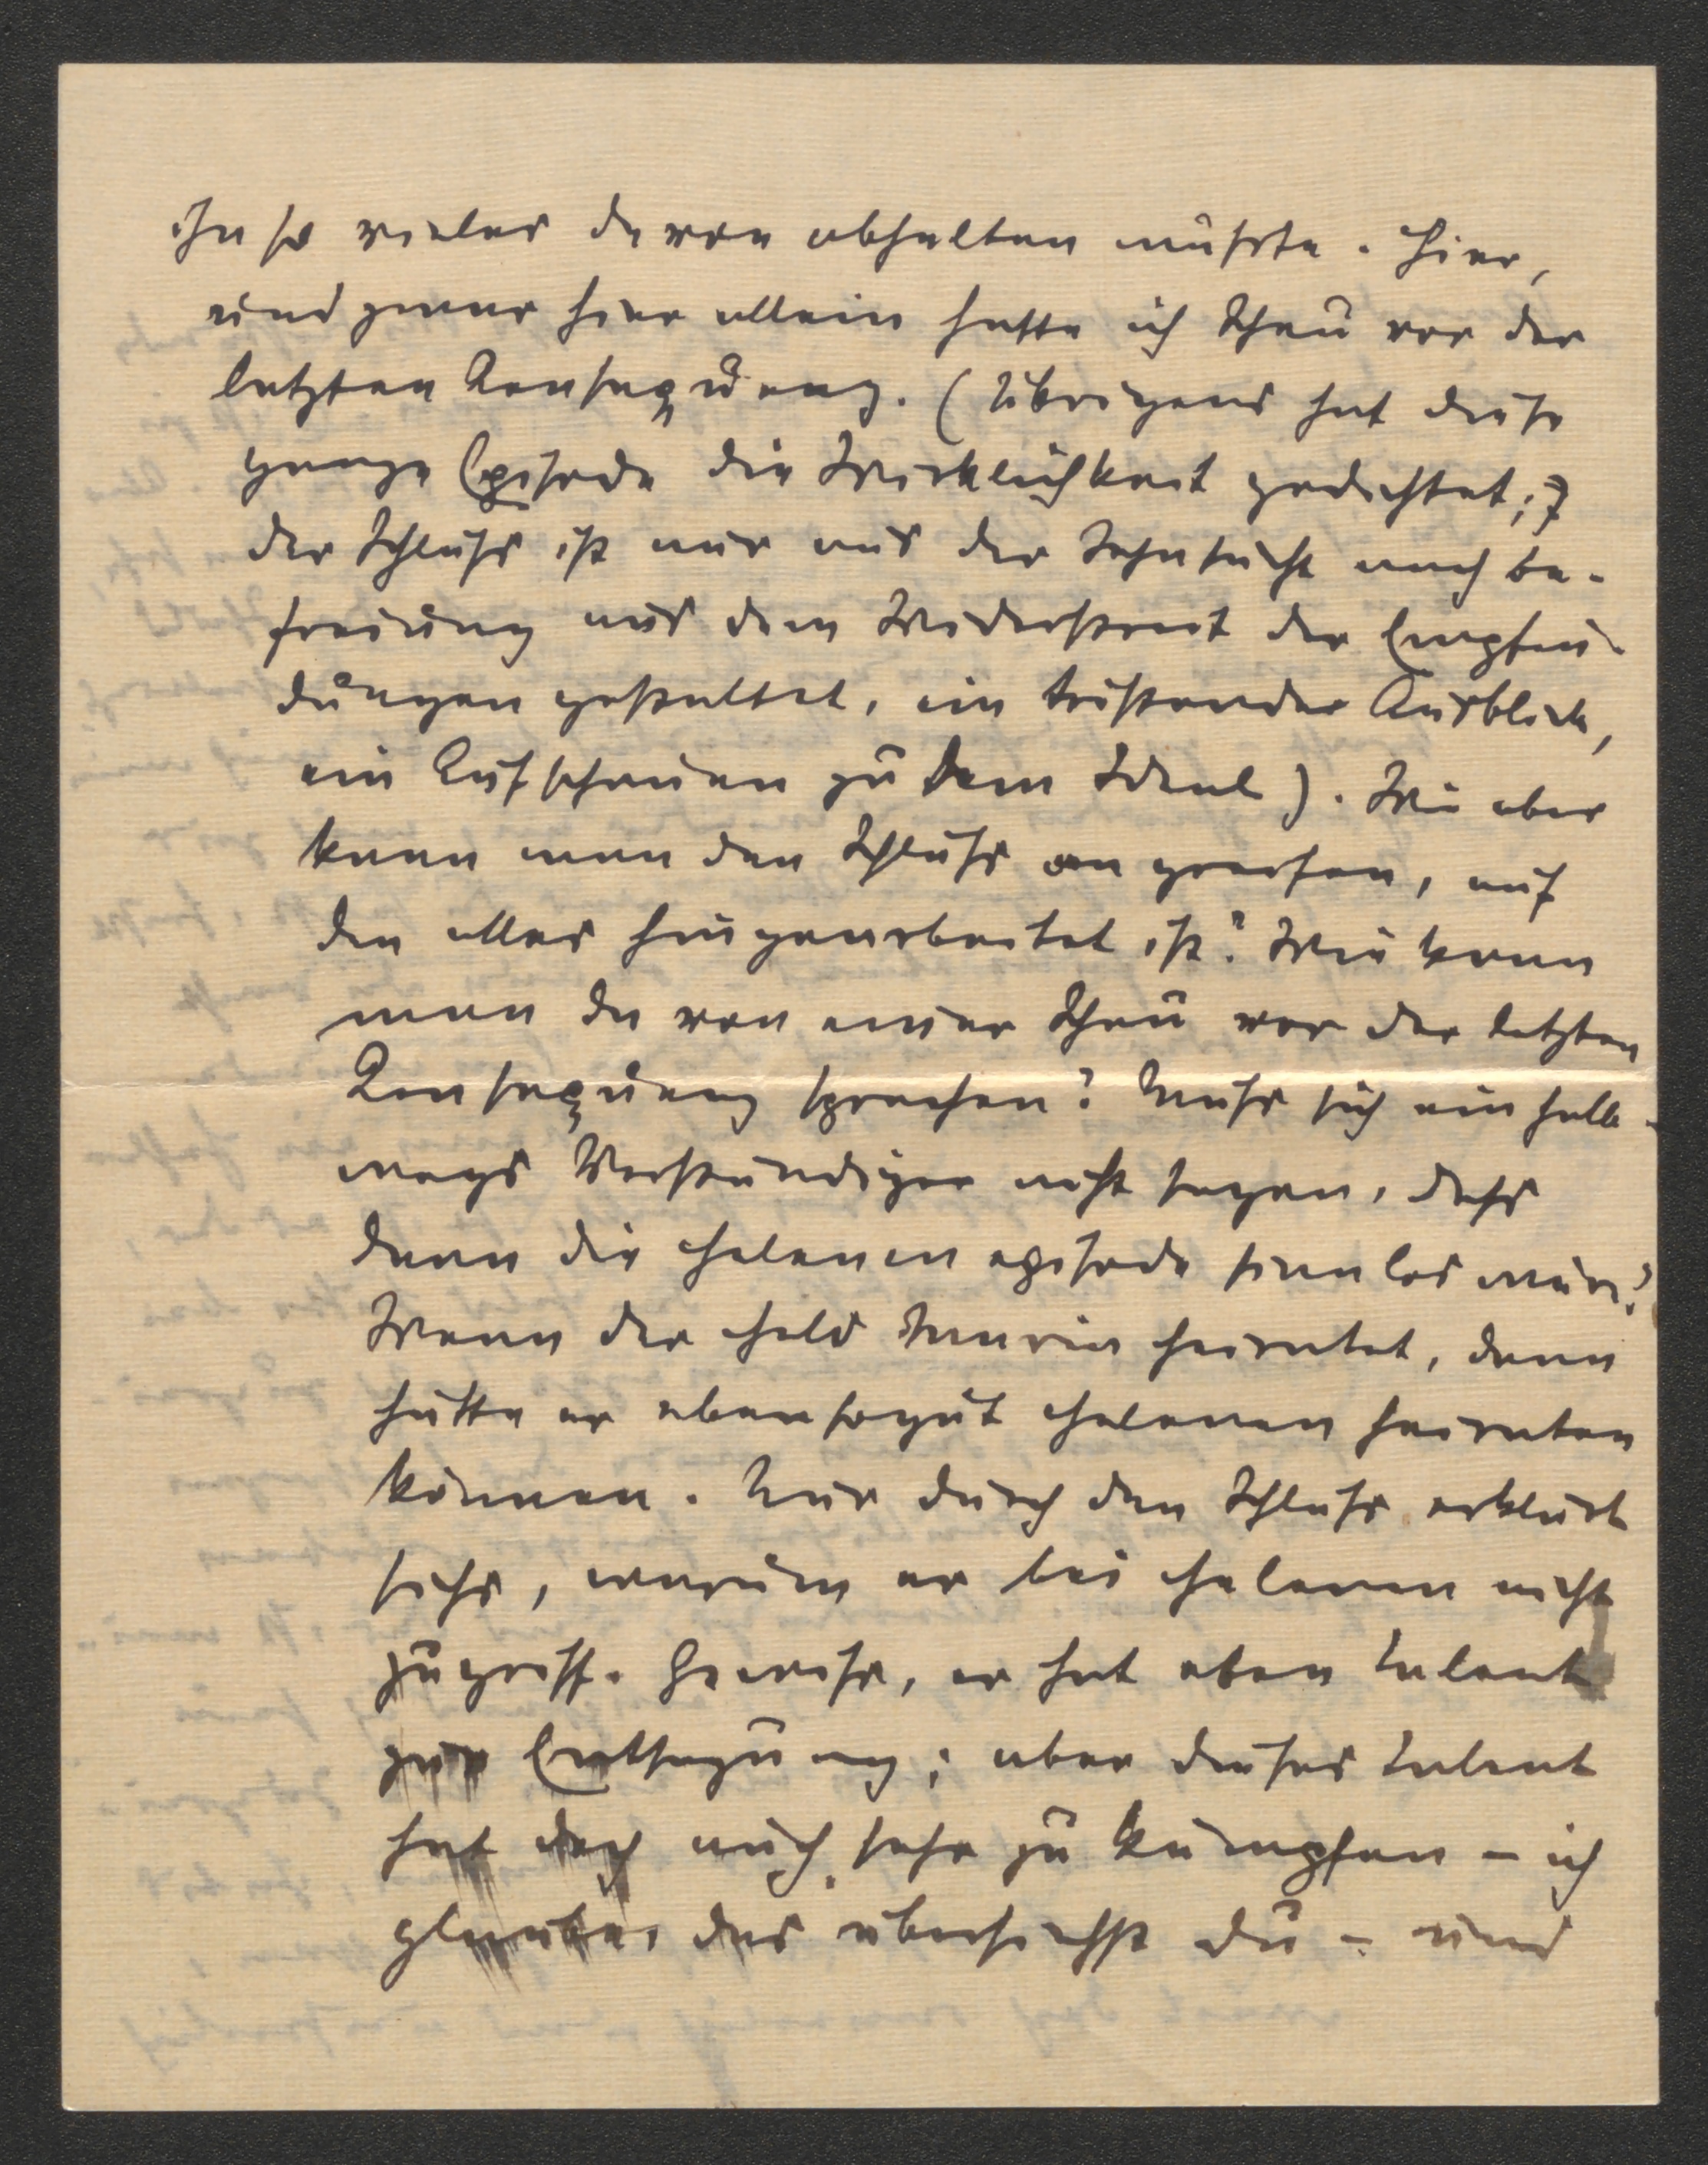 ihn so vieles davon abhalten müsste. Hier,
und zwar hier allein hatte ich Scheu vor der
letzten Konsequenz. (Übrigens hat diese
ganze Episode die Wirklichkeit gedichtet;
der Schluss ist nur aus der Sehnsucht nach Be-
freiung aus dem Widerstreit der Empfin-
dungen gestaltet, ein tröstender Ausblick,
ein Aufschauen zu dem Ideal). Wie aber
kann man den Schluss angreifen, auf
den alles hingearbeitet ist? Wie kann
man da von einer Scheu vor der letzten
Konsequenz sprechen? Muss sich ein halb-
wegs Verständiger nicht sagen, dass
dann die Helenenepisode sinnlos wäre?
Wenn der Held Maria heiratet, dann
hätte er ebensogut Helenen heiraten
können. Nur durch den Schluss erklärt
sichs, warum er bei Helenen nicht
zugriff. Gewiss, er hat eben Talent
zur Entsagung; aber dieses Talent
hat doch auch sehr zu kämpfen – ich
glaube, das übersiehst du – und